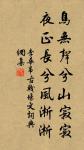 鳥無聲兮山寂寂
夜正長兮風淅淅
李華弔古戰場文詞典
網集